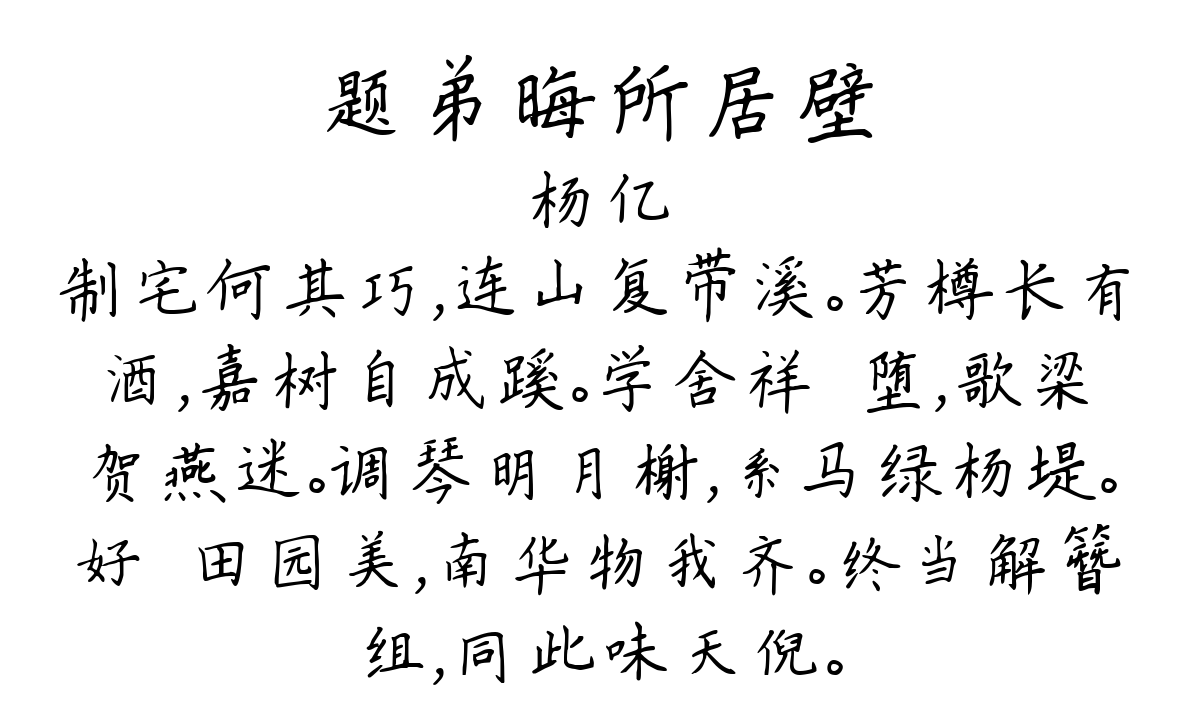 题弟晦所居壁
杨亿
制宅何其巧,连山复带溪。芳樽长有
酒,嘉树自成蹊。学舍祥 堕,歌梁
贺燕迷。调琴明月榭,系马绿杨堤。
好 田园美,南华物我齐。终当解簪
组,同此味天倪。